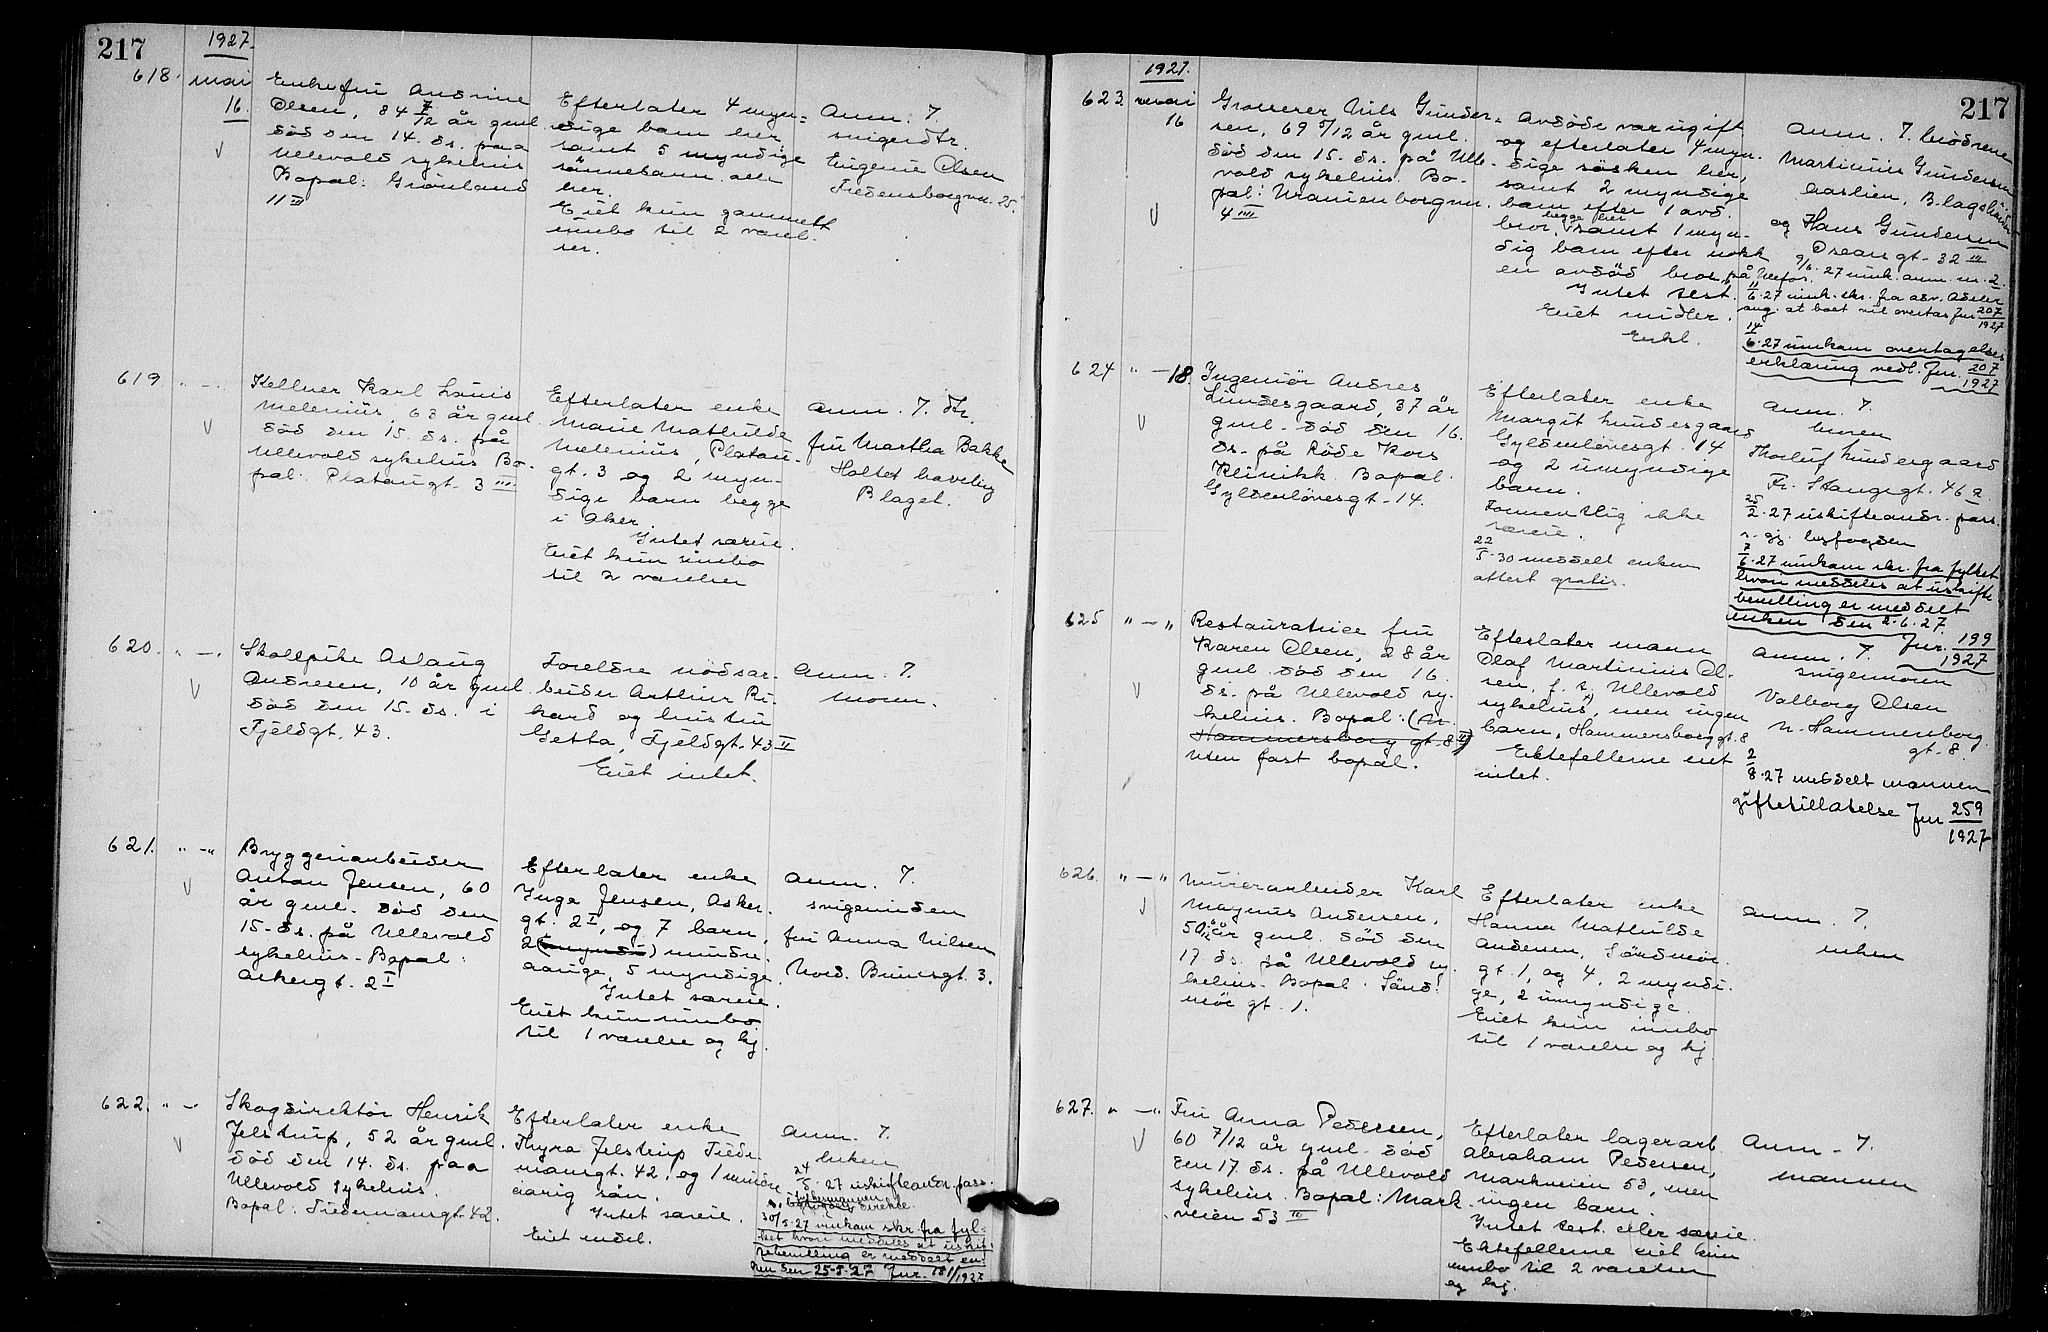 217
1927.
618. mai
16.
Enkefru Andrine
Olsen, 84 7/12 år gml.
död den 14. ds. paa
Ullevold sykehus
Bopal: Grønland
11 III
Efterlater 4 myn=
dige barn her
samt 5 myndige
sønnebarn alle
her.
Eiet kun gammelt
innbo til 2 værel-
ser.
Anm. 7.
svigerdtr.
Eugenie Olsen
Fredensborgvn. 25.
619 " -
Kellner Karl Louis
Melenius, 63 år gml.
död den 15. ds. på
Ullevold sykehus Bo-
pal: Platougt. 3 IIII
Efterlater enke
Marie Mathilde
Melenius, Platou-
gt. 3 og 2 myn-
dige barn begge
i Aker.
Intet særeie.
Eiet kun innbo
til 2 værelser
Anm. 7. dtr.
fru Martha Bakke
Holtet haveby
B laget.
620. " -
Skolepike Aslaug
Andresen, 10 år gml.
död den 15. ds. i
Fjeldgt. 43.
Foreldre nödsar-
beider Arthur Ri-
kard og hustru
Getta, Fjeldgt. 43 II
Eiet intet.
Anm. 7.
moren.
621. " - "
Bryggeriarbeider
Anton Jensen, 60
år gml. död den
15. ds. på Ullevold
sykehus. Bopal:
Askergt. 2 I
Efterlater enke
Inga Jensen, Asker-
gt. 2 I, og 7 barn,
2 (umyndi) mindre-
aarige, 5 myndige.
Intet særeie.
Eiet kun innbo
til 1 værelse og kj.
Anm. 7.
svigerinden
fru Anna Nilsen
Nord. Brunsgt. 3.
622. " -
Skogdirektør Henrik
Jelstrup, 52 år gml.
död den 14. ds. paa
Ullevold sykehus.
Bopal: Tiedemansgt. 42.
Efterlater enke
Thyra Jelstrup Tiede-
mansgt. 42, og 1 mindre-
aarig sön.
Intet særeie.
Eiet endel.
Anm. 7.
enken
24/5-27 uskifteandr. pass.
fylkesmannen direkte.
30/5-27 innkom skr. fra fyl-
ket hvori meddeles at uskif-
tebevilling er meddelt en-
ken den 25-5-27 Jnr. 181/1927
217
1927.
623. mai
16
Grosserer Nils Gunder=
sen, 69 5/12 år gml.
död den 15. ds. på Ulle-
vold sykehus. Bo-
pal: Uranienborgvn.
4 IIII
Avdöde var ugift
og efterlater 4 myn-
dige søsken her,
samt 2 myndige
barn efter 1 avd.
bror, begge her samt 1 myn-
dig barn efter nokk
en avdöd bror på Ulefos.
Intet test.
Eiet midler.
Enkl.
Anm. 7. brødrene
Martinius Gundersen
og Hans Gundersen
Oscarsgt. 32 III
9/6-27 innk. anm. nr. 2.
11/6-27 innk. skr. fra adv.
ang. at boet vil overtas Jnr 207/1927
14/6-27 innkom overtagelses
erklæring vedl. Jnr. 207/1927
624 " - 18.
Ingeniör Andres
Lundesgaard, 37 år
gml. död den 16.
ds. på Röde Kors
Klinikk Bopal.
Gyldenlövesgt. 14.
Efterlater enke
Margit Lundesgaard
Gyldenlövesgt. 14
og 2 umyndige
barn.
Formentlig ikke
særeie.
22/5-30 meddelt enken
attest gratis.
Anm. 7.
broren
Thorleif Lundesgaard
Fr. Stangsgt. 46 a.
25/2-27 uskifteandr. pass.
n. gj. byfogden
7/6-27 innkom skr. fra fylket
hvori meddeles at uskifte
bevilling er meddelt
enken den 2-6-27.
Jnr. 199/1927
625 " - "
Restauratrice fru
Karen Olsen, 28 år
gml. död den 16.
ds. på Ullevold sy-
kehus. Bopal: (N.
Hammersborg gt. 8 II)
uten fast bopal.
Efterlater mann
Olaf Martinius Ol-
sen, f. t. Ullevold
sykehus, men ingen
barn, Hammersborg gt. 8
Ektefellerne eiet
intet.
Anm. 7.
svigermoren
Valborg Olsen
N. Hammersborg
gt. 8.
2/8-27 meddelt mannen
giftetillatelse Jnr 259/1927
626. " - "
Murerarbeider Karl
Magnus Andersen,
50 år gml. död den
17. ds. på Ullevold sy-
kehus. Bopal. Sönd-
möe gt. 1.
Efterlater enke
Hanna Mathilde
Andersen, Söndmör-
gt. 1, og 4, 2 myndi-
ge, 2 umyndige.
Eiet kun innbo
til 1 værelse og kj.
Anm. 7.
enken
627. " - "
Fru Anna Pedersen,
60 7/12 år gml. död
den 17. ds. på Ullevold
sykehus. Bopal: Mark-
veien 53 III
Efterlater lagerarb.
Abraham Pedersen,
Markveien 53, men
ingen barn.
Intet test. eller særeie.
Ektefellerne eiet kun
innbo til 2 værelser
og kj.
Anm. 7.
mannen